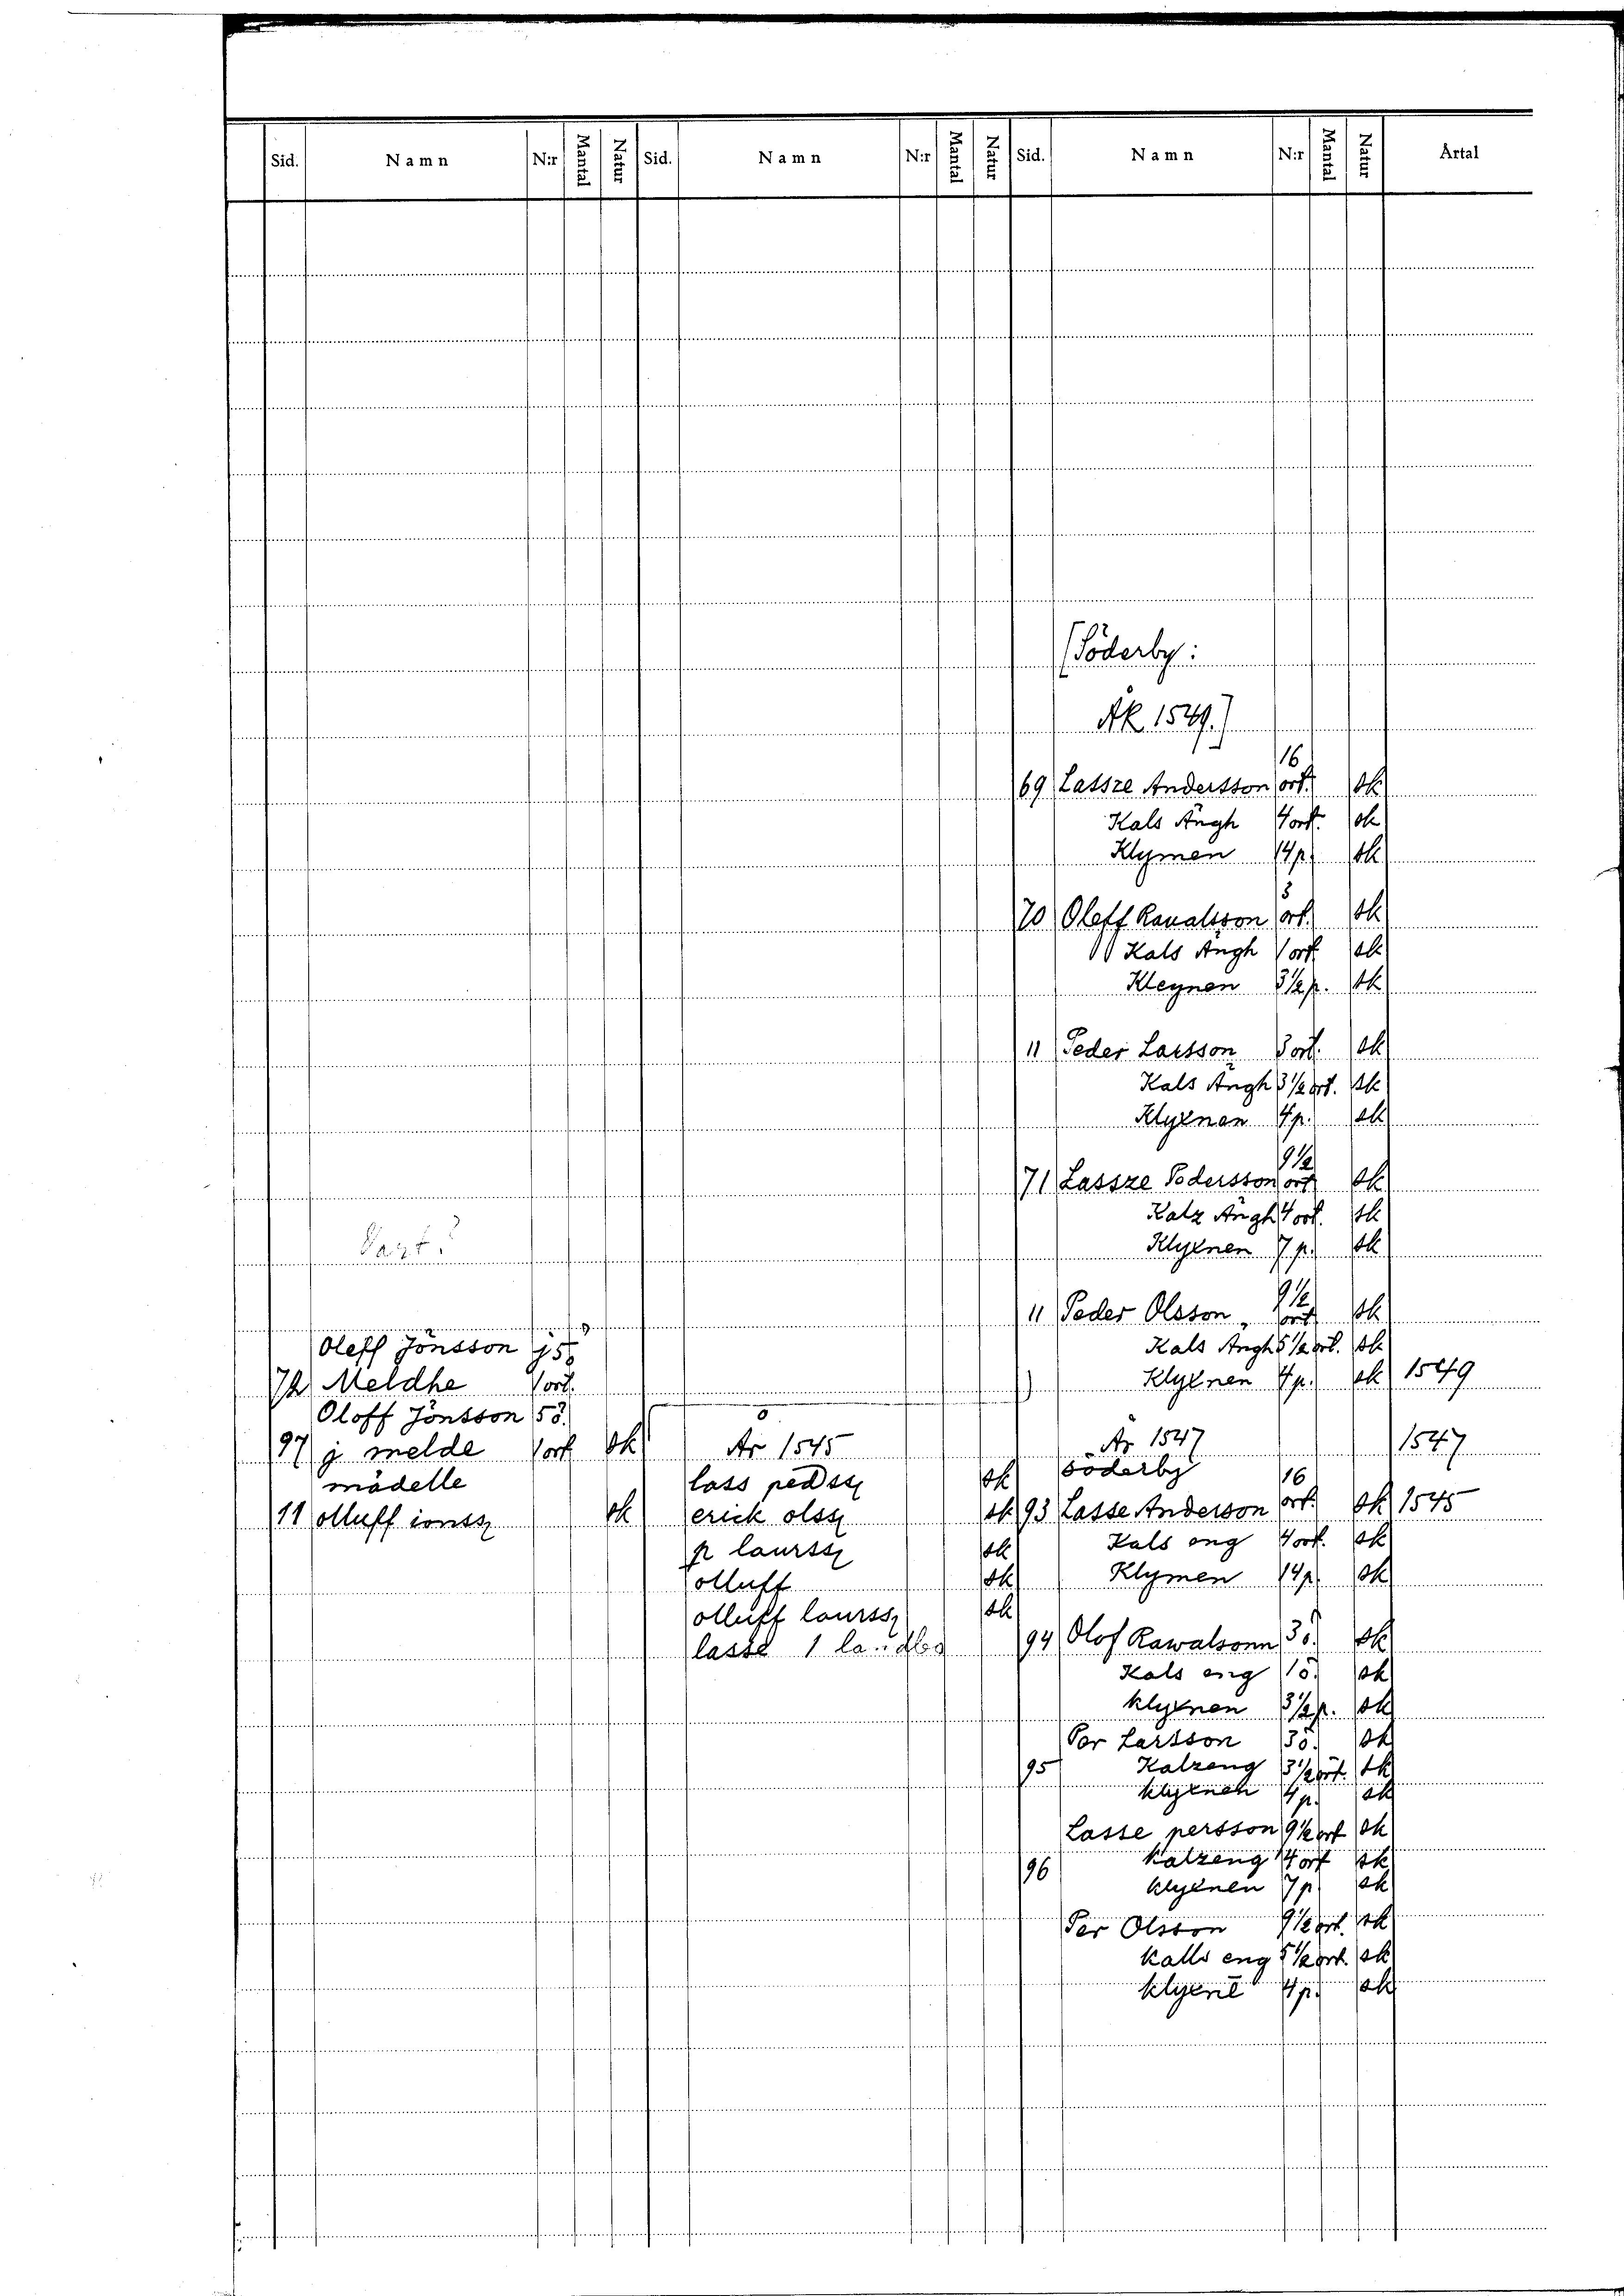 Sid. Namn N:r Mantal Natur Sid. Namn N:r Mantal Natur Sid. Namn N:r Mantal Natur Årtal
[Söderby:
ÅR 1549.]
16
69 Lassze Andersson ort. sk
Kals Ängh 4 ort. sk
Klymen 14 p. sk
3
70 Oleff Ravalsson ort. sk
Kals Ängh 1 ort. sk
Kleynen 3½ p. sk
11 Peder Larsson 3 ort. sk
Kals Ängh 3½ ort. sk
Klyenen 4 p. sk
9½
71 Lassze Pedersson ort sk
Kalz Ängh 4 ort. sk
Klyenen 7 p. sk
9½
11 Peder Olsson ort sk
Kals Ängh 5½ ort. sk
Klyenen 4 p. sk 1549
Oleff Jönsson j5
72 Meldhe 1 ort.
Oloff Jönsson 5ö.
97 j melde 1 ort sk
mädelle
11 olluff ionssz sk
År 1545
lass pedssz sk
erick olssz sk
p laurssz sk
olluff sk
olluff laurssz sk
lasse 1
År 1547 1547
Söderby 16
93 Lasse Anderson ort. sk 1545
Kals eng 4 ort. sk
Klymen 14 p. sk
94 Olof Rawalsonn 3ö. sk
Kals eng 1ö. sk
klyenen 3½ p. sk
Per Larsson 3ö. sk
95 Kalzeng 3½ ort. sk
klyenen 4 p. sk
Lasse persson 9½ ort sk
96 kalzeng 4 ort sk
klyenen 7 p sk
Per Olsson 9½ ort. sk
kalls eng 5½ ort. sk
klyenē 4 p. sk